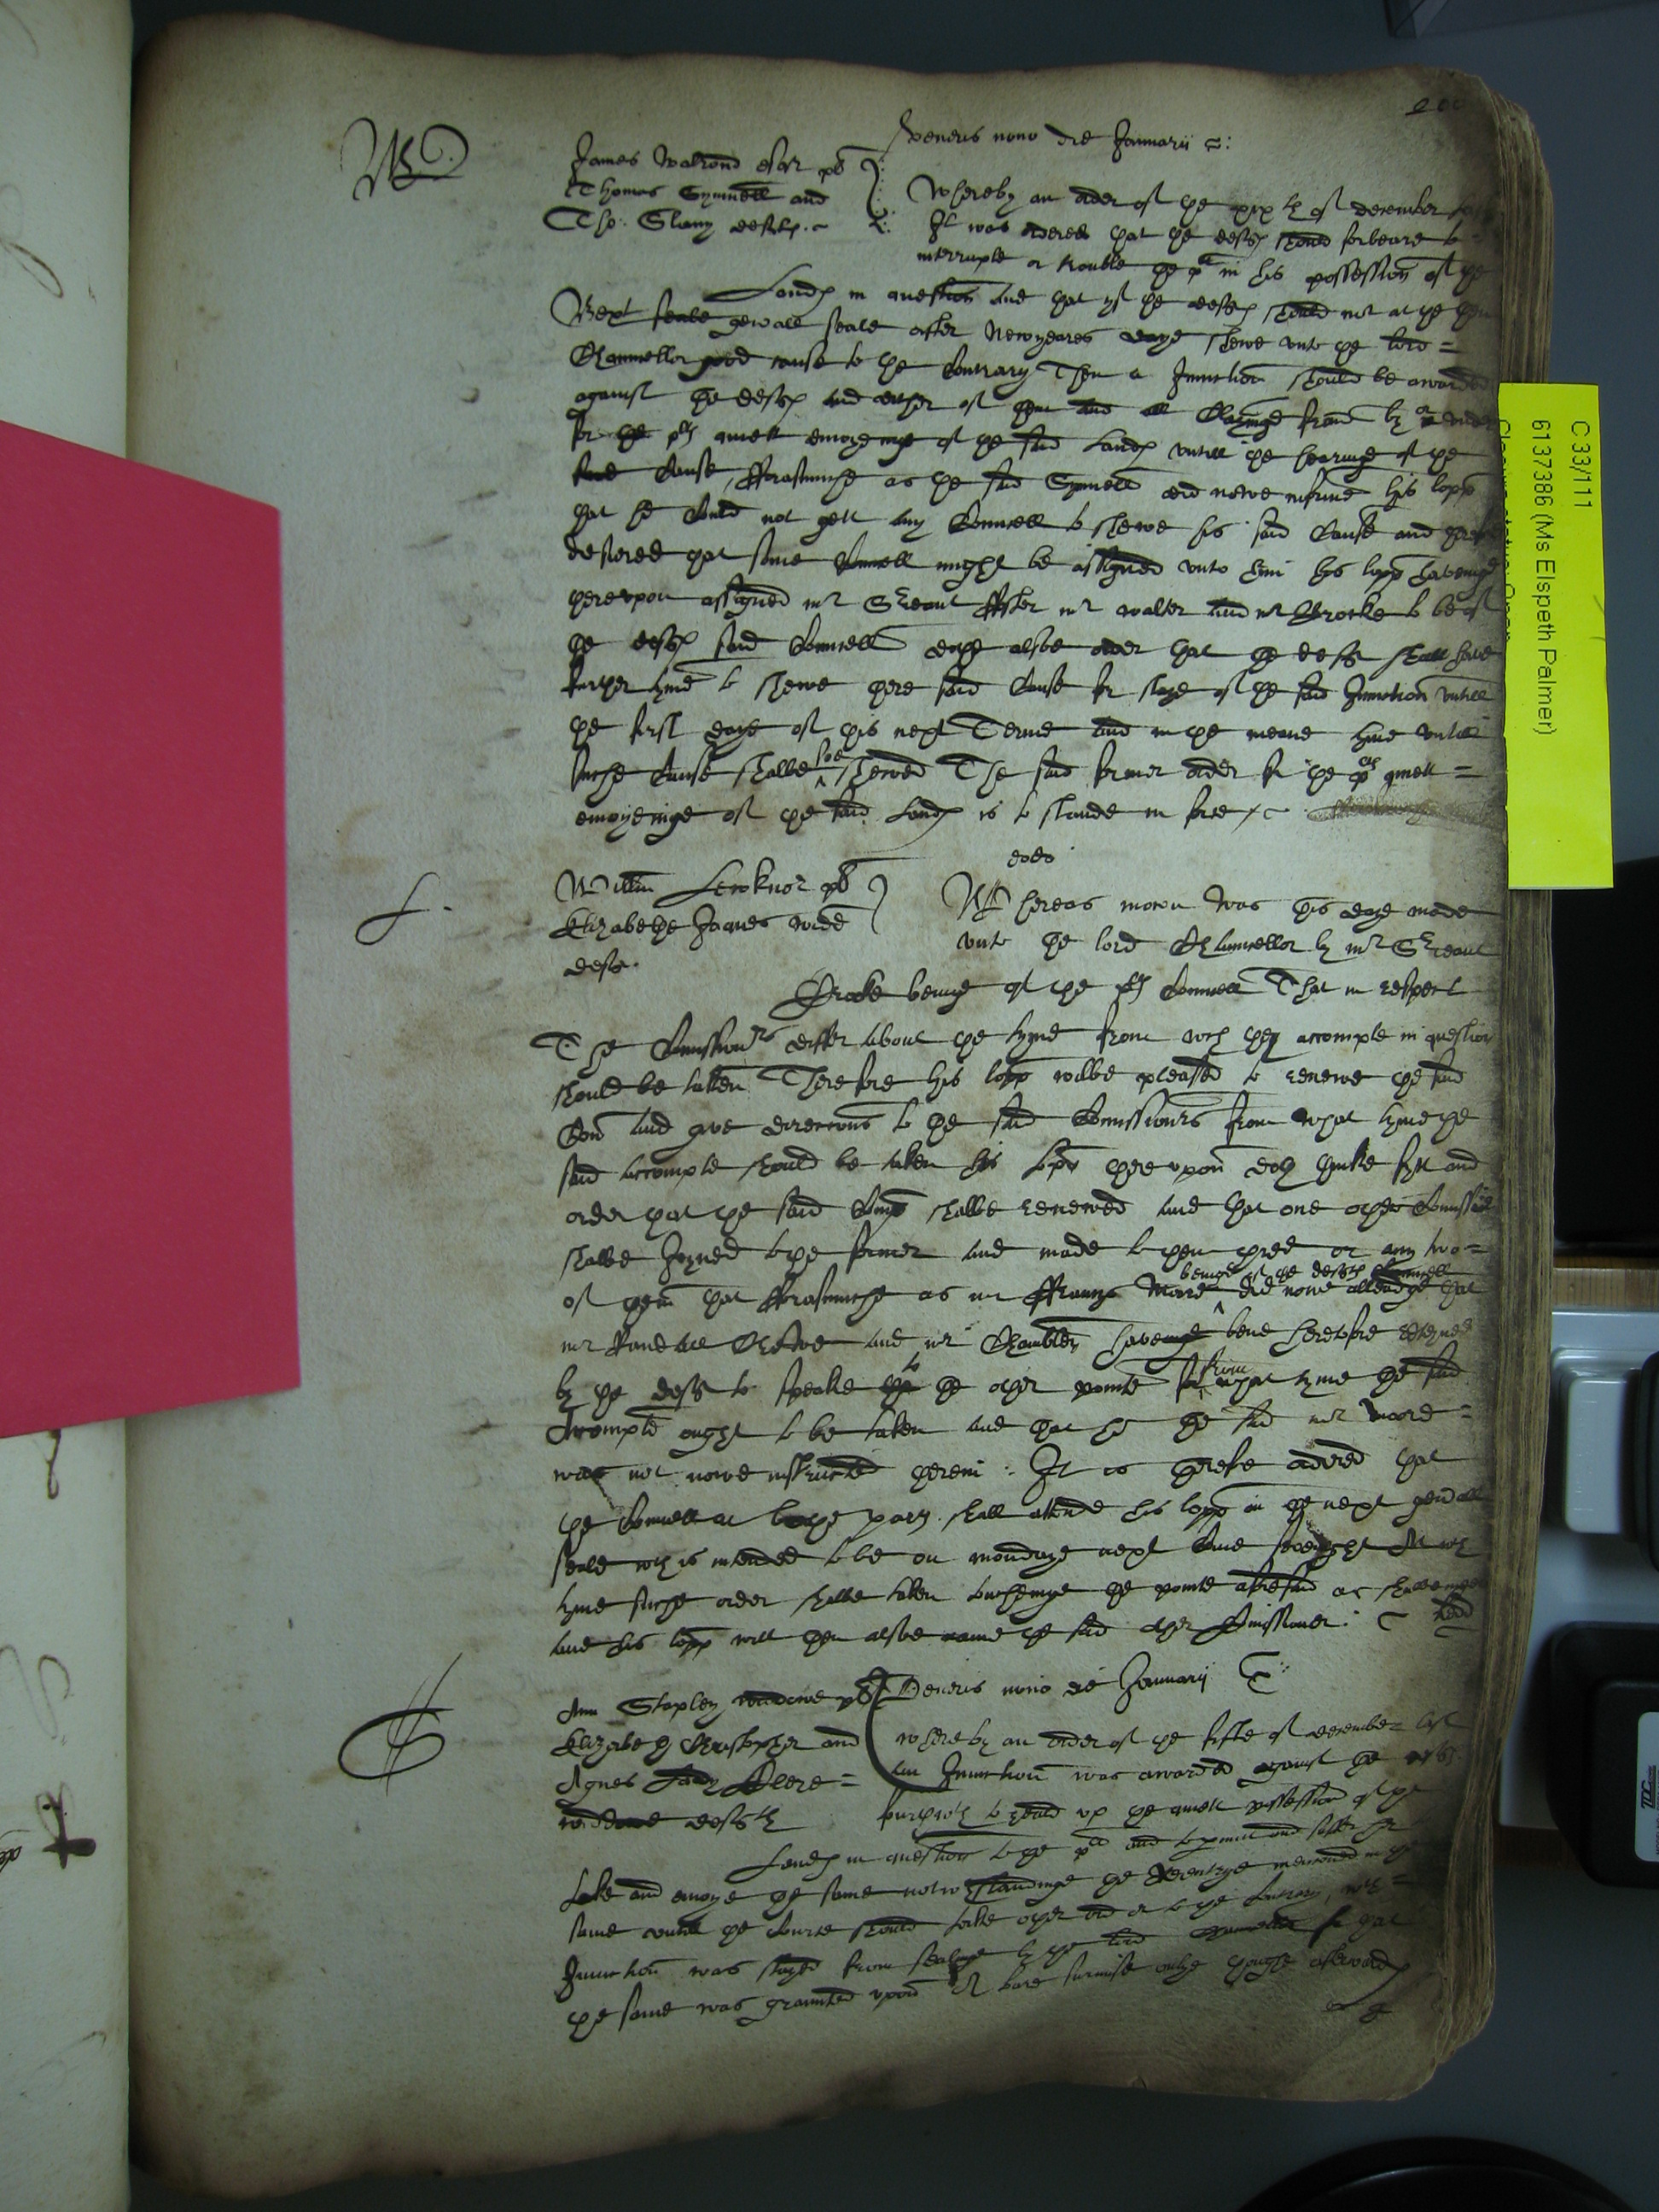 200
W
veneris nono die Januarii
James Walrond esqr pl
Thomas Gymnell and
Tho: Slany deftes
Whereby an order of the xix th of december last
It was ordered that the deftes should forbeare to
interrupte or trouble the pl in his possession of the
Landes in question And that yf the deftes should not at the then
Next seale generall seale after Newyeares daye shewe unto the lord
Chauncellor good cause to the Contrary Then a Iniunction should be awarded
against the deftes and either of them and all Clayminge from by or under
for the ples quiett enioyeinge of the said Landes untill the hearinge of the
said Cause, fforasmuche as the said Gymnell did nowe informe his lopp
that he Could not gett any Counsell to shewe his said Cause and therefore
desired that some Counsell might be assigned unto him his lopp haveinge
thereupon assigned mr Sreant mr walter and mr Brocke to be of
the deftes said Counsell doth alsoe order that the deftes shall have
further tyme to shewe there said Cause for staye of the said Iniunction untill
the first daye of this next Terme and in the meane tyme untill
suche Cause shalbe soe shewed The said former order for the ples quiett
enioyeinge of the said Landes is to stande in force
L
eodem
Willm Lewknor pl
Elizabethe Jaques widd
deft
Whereas mocon was this daye made
unto the lord Chauncellor by mr Sreant
Crooke beinge of the ples Counsell That in respect
The Comissioners differ about the tyme from wch they accompte in question
should be taken Therefore his lopp wilbe pleased to renewe the said
Com and give direccons to the said Comissioners from what tyme the
said accompte should be taken his lopp thereupon doth thinke fytt and
order that the said Comis shalbe renewed and that one other Comissioner
shalbe Joyned to the former and made to them three or any two
of them that fforasmuche as mr ffrauncis Moore beinge of the deftes Counsell did nowe alleadge that
mr Randall Crewe and mr haveinge bene heretofore reteyned
by the deft to speake to the other pointe from what tyme the said
Accompte ought to be taken and that he the said mr moore
was not nowe instructed therein It is therefore ordered that
the Counsell at bothe partes shall attende his lopp on the next generall
seale wch is intended to be on mondaye next Come sevenight At wch
tyme suche order shalbe taken touchinge the pointe aforesaid as shalbe meete
and his lopp will then alsoe name the said other Comissioner
S
Ann Stapley widdowe pl
Elizabeth Christopher and
Agnes Lady
widdowe deftes
Veneris nono die Januarii
whereby an order of the fifte of december last
an Iniunction was awarded against the deftes
furthwth to yeald up the quiett possession of the
Landes in question to the pl and to permitt and suffer her
take and enioye the same notwthstandinge the mencioned in the
same untill the Courte should take other order to the Contrary, wch
Iniunction was stayed from sealinge by the lord for that
the same was graunted upon A bare surmise onlye thoughe afterwardes
C 33/111
6137386 (Ms Elspeth Palmer)